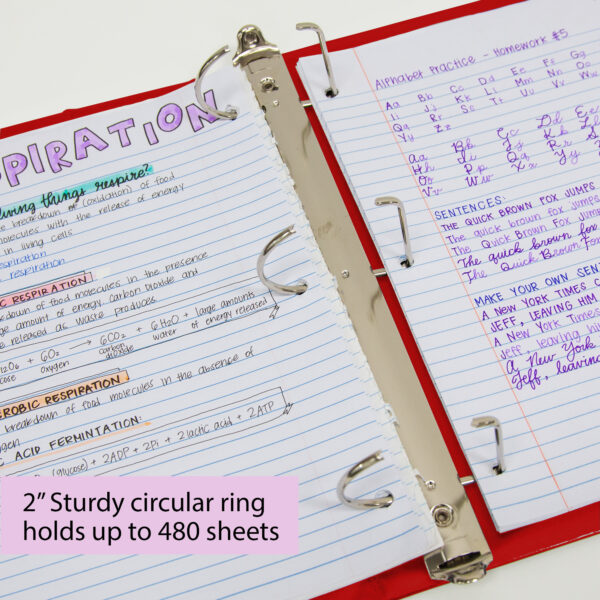 PIRATION
living things respire?
breakdown of (oxidation) of food
molecules with the release of energy
in living cells
respiration
respiration
C RESPIRATION
down of food molecules in the presence
amount of energy, carbon dioxide and
released as waste produces
6O₂ → 6CO₂ + 6H₂O + large amounts
oxygen carbon dioxide water of energy released
EROBIC RESPIRATION
breakdown of food molecules in the absence of
gen
C ACID FERMINTATION:
(glucose) + 2ADP + 2Pi → 2lactic acid + 2ATP
Alphabet Practice - Homework #5
Aa Bb Cc Dd Ee Ff Gg
Ii Jj Kk Ll Mm Nn Oo
Qq Rr Ss Tt Uu Vv W
Yy Zz
Aa Bb Cc Dd E
Hh Ii Jj Kk L
Oo Pp Qq Rr S
Vv Ww Xx Yy
SENTENCES:
THE QUICK BROWN FOX JUMPS
The quick brown fox jumps
The Quick Brown Fox Jump
The quick brown fox
The Quick Brown Fo
MAKE YOUR OWN SENT
A NEW YORK TIMES C
JEFF, LEAVING HIM
A New York Times
Jeff, leaving hi
A New York
Jeff, leavin
2” Sturdy circular ring
holds up to 480 sheets